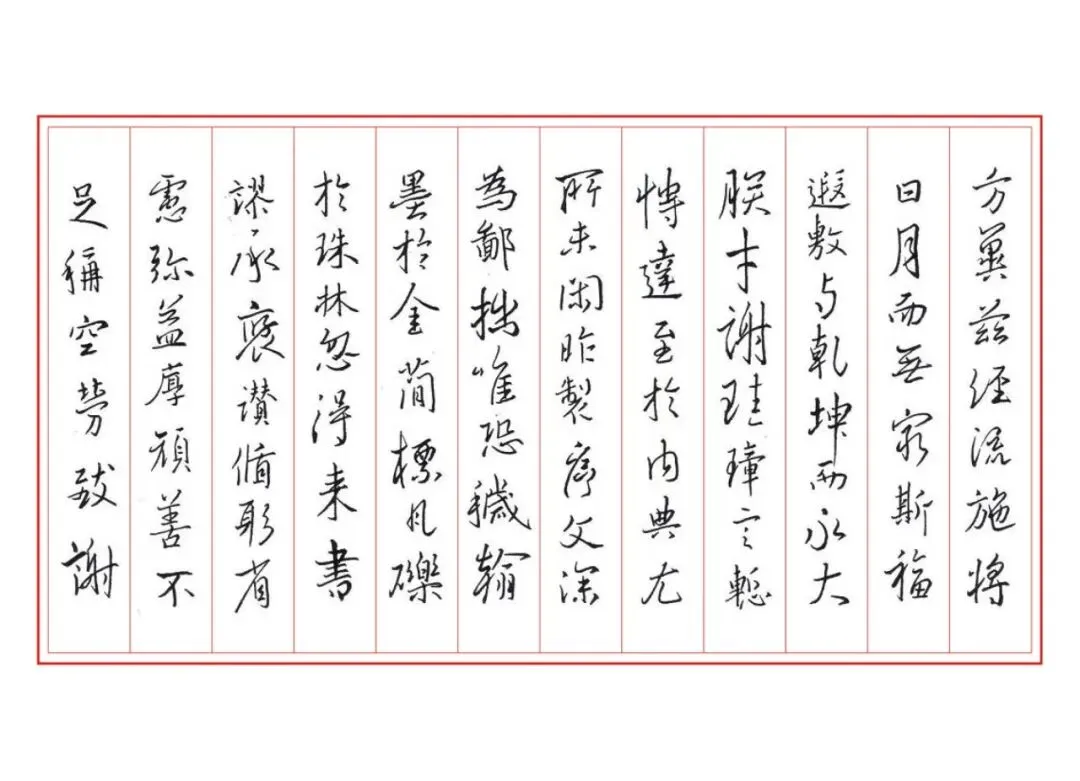 方冀茲經流施將
日月而無窮斯福
遐敷与乾坤而永大
朕才謝珪璋言慙
博達至於內典尤
所未閑昨製序文深
為鄙拙唯恐穢翰
墨於金簡標瓦礫
於珠林忽得来書
謬承褒讚循躬省
慮弥益厚顏善不
足稱空勞致謝